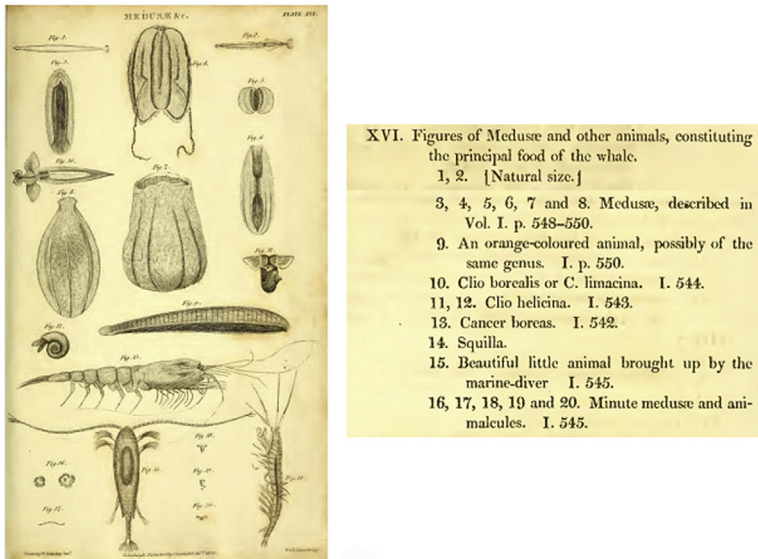 MEDUSÆ &c.
PLATE XVI.
Fig. 1.
Fig. 2.
Fig. 3.
Fig. 4.
Fig. 5.
Fig. 6.
Fig. 10.
Fig. 7.
Fig. 8.
Fig. 9.
Fig. 11.
Fig. 13.
Fig. 14.
Fig. 15.
Fig. 16.
Fig. 17.
Fig. 18.
Fig. 19.
Fig. 20.
XVI. Figures of Medusæ and other animals, constituting
the principal food of the whale.
1, 2. [Natural size.]
3, 4, 5, 6, 7 and 8. Medusæ, described in
Vol. I. p. 548–550.
9. An orange-coloured animal, possibly of the
same genus. I. p. 550.
10. Clio borealis or C. limacina. I. 544.
11, 12. Clio helicina. I. 543.
13. Cancer boreas. I. 542.
14. Squilla.
15. Beautiful little animal brought up by the
marine-diver I. 545.
16, 17, 18, 19 and 20. Minute medusæ and ani-
malcules. I. 545.